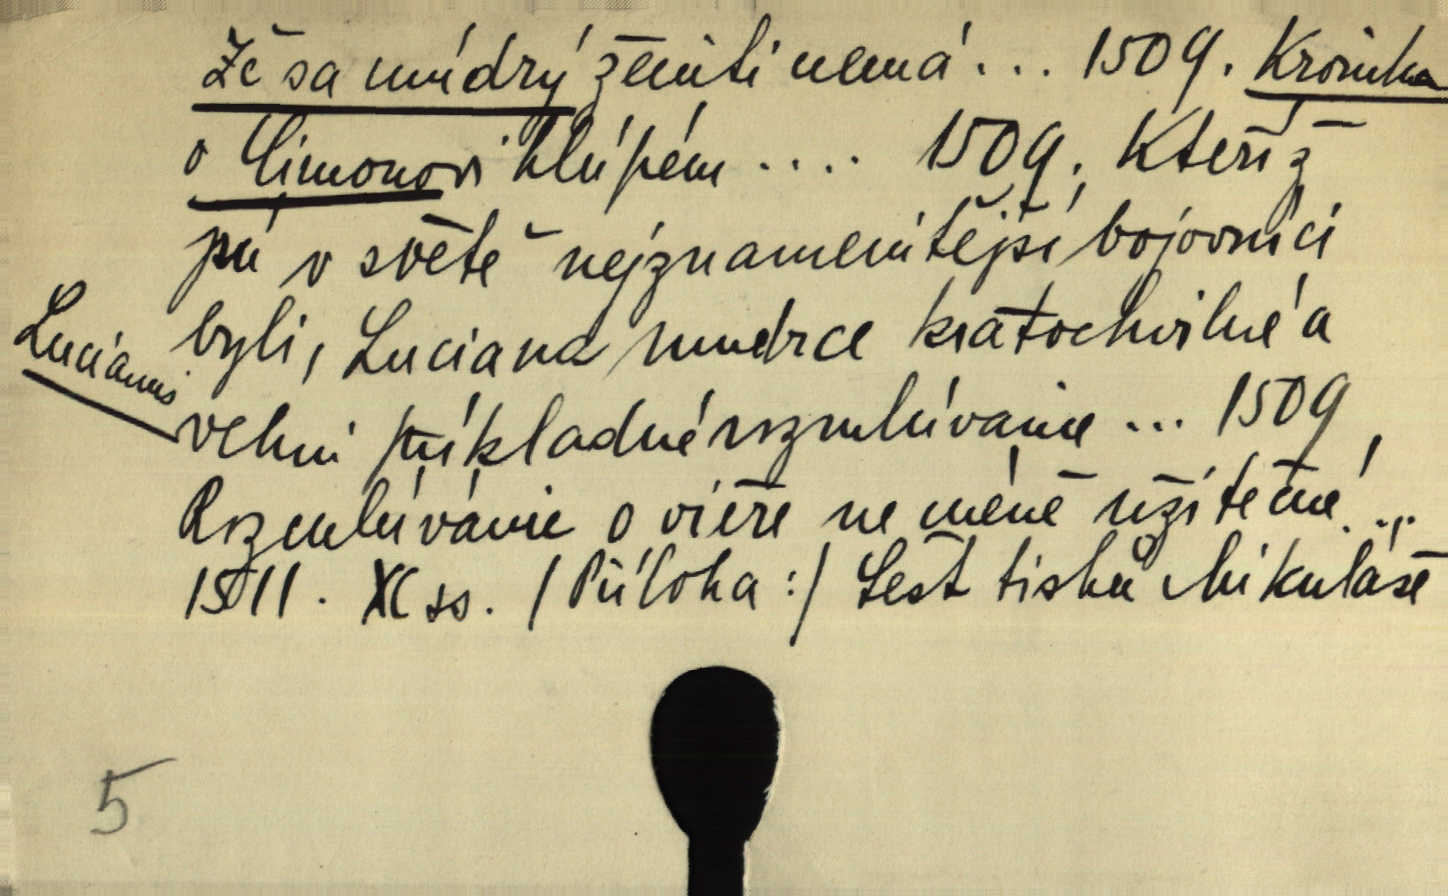 Že sa múdrý ženiti nemá... 1509. Kronika
o Simonovi hlúpém.... 1509. Kteříž
pú v světě nejznamenitější bojovníci
byli, Luciana mudrce kratochvilné a
Lucianus
velmi příkladné rozmlúvanie... 1509,
Rozmlúvánie o vieře ne méně užitečné...,
1511. XC ss. /Příloha:/ Šest tisků Mikuláše
5